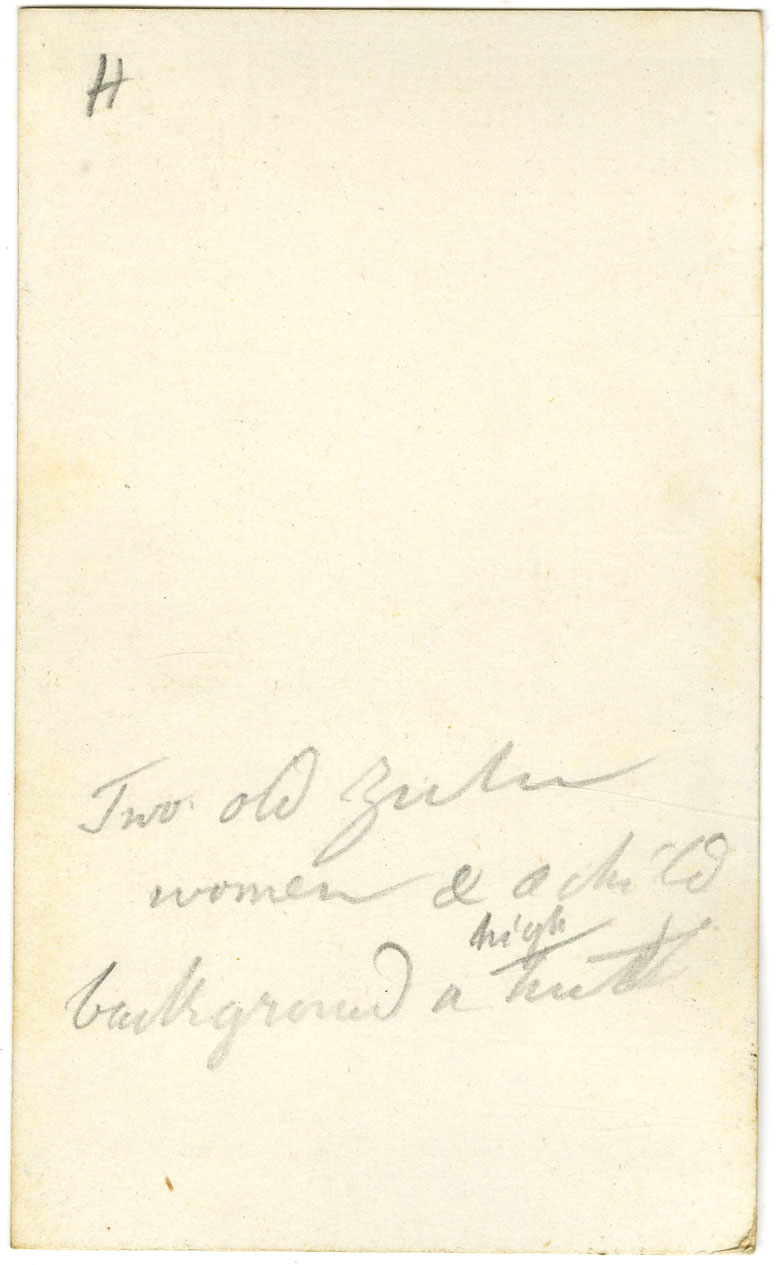 H
Two old Zulu
women & a child
high
background a hut